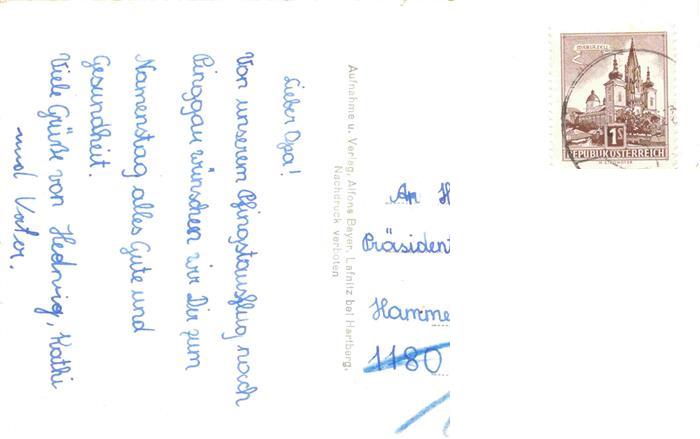 Lieber Opa!
Von unserem Pfingstausflug nach
Pinggau wünschen wir Dir zum
Namenstag alles Gute und
Gesundheit.
Viele Grüße von Hedwig, Kathi
und Vater.
Aufnahme u. Verlag, Alfons Bayer, Lafnitz bei Hartberg,
Nachdruck verboten
MARIAZELL
1S
REPUBLIK ÖSTERREICH
An H
Präsident
Hamme
1180